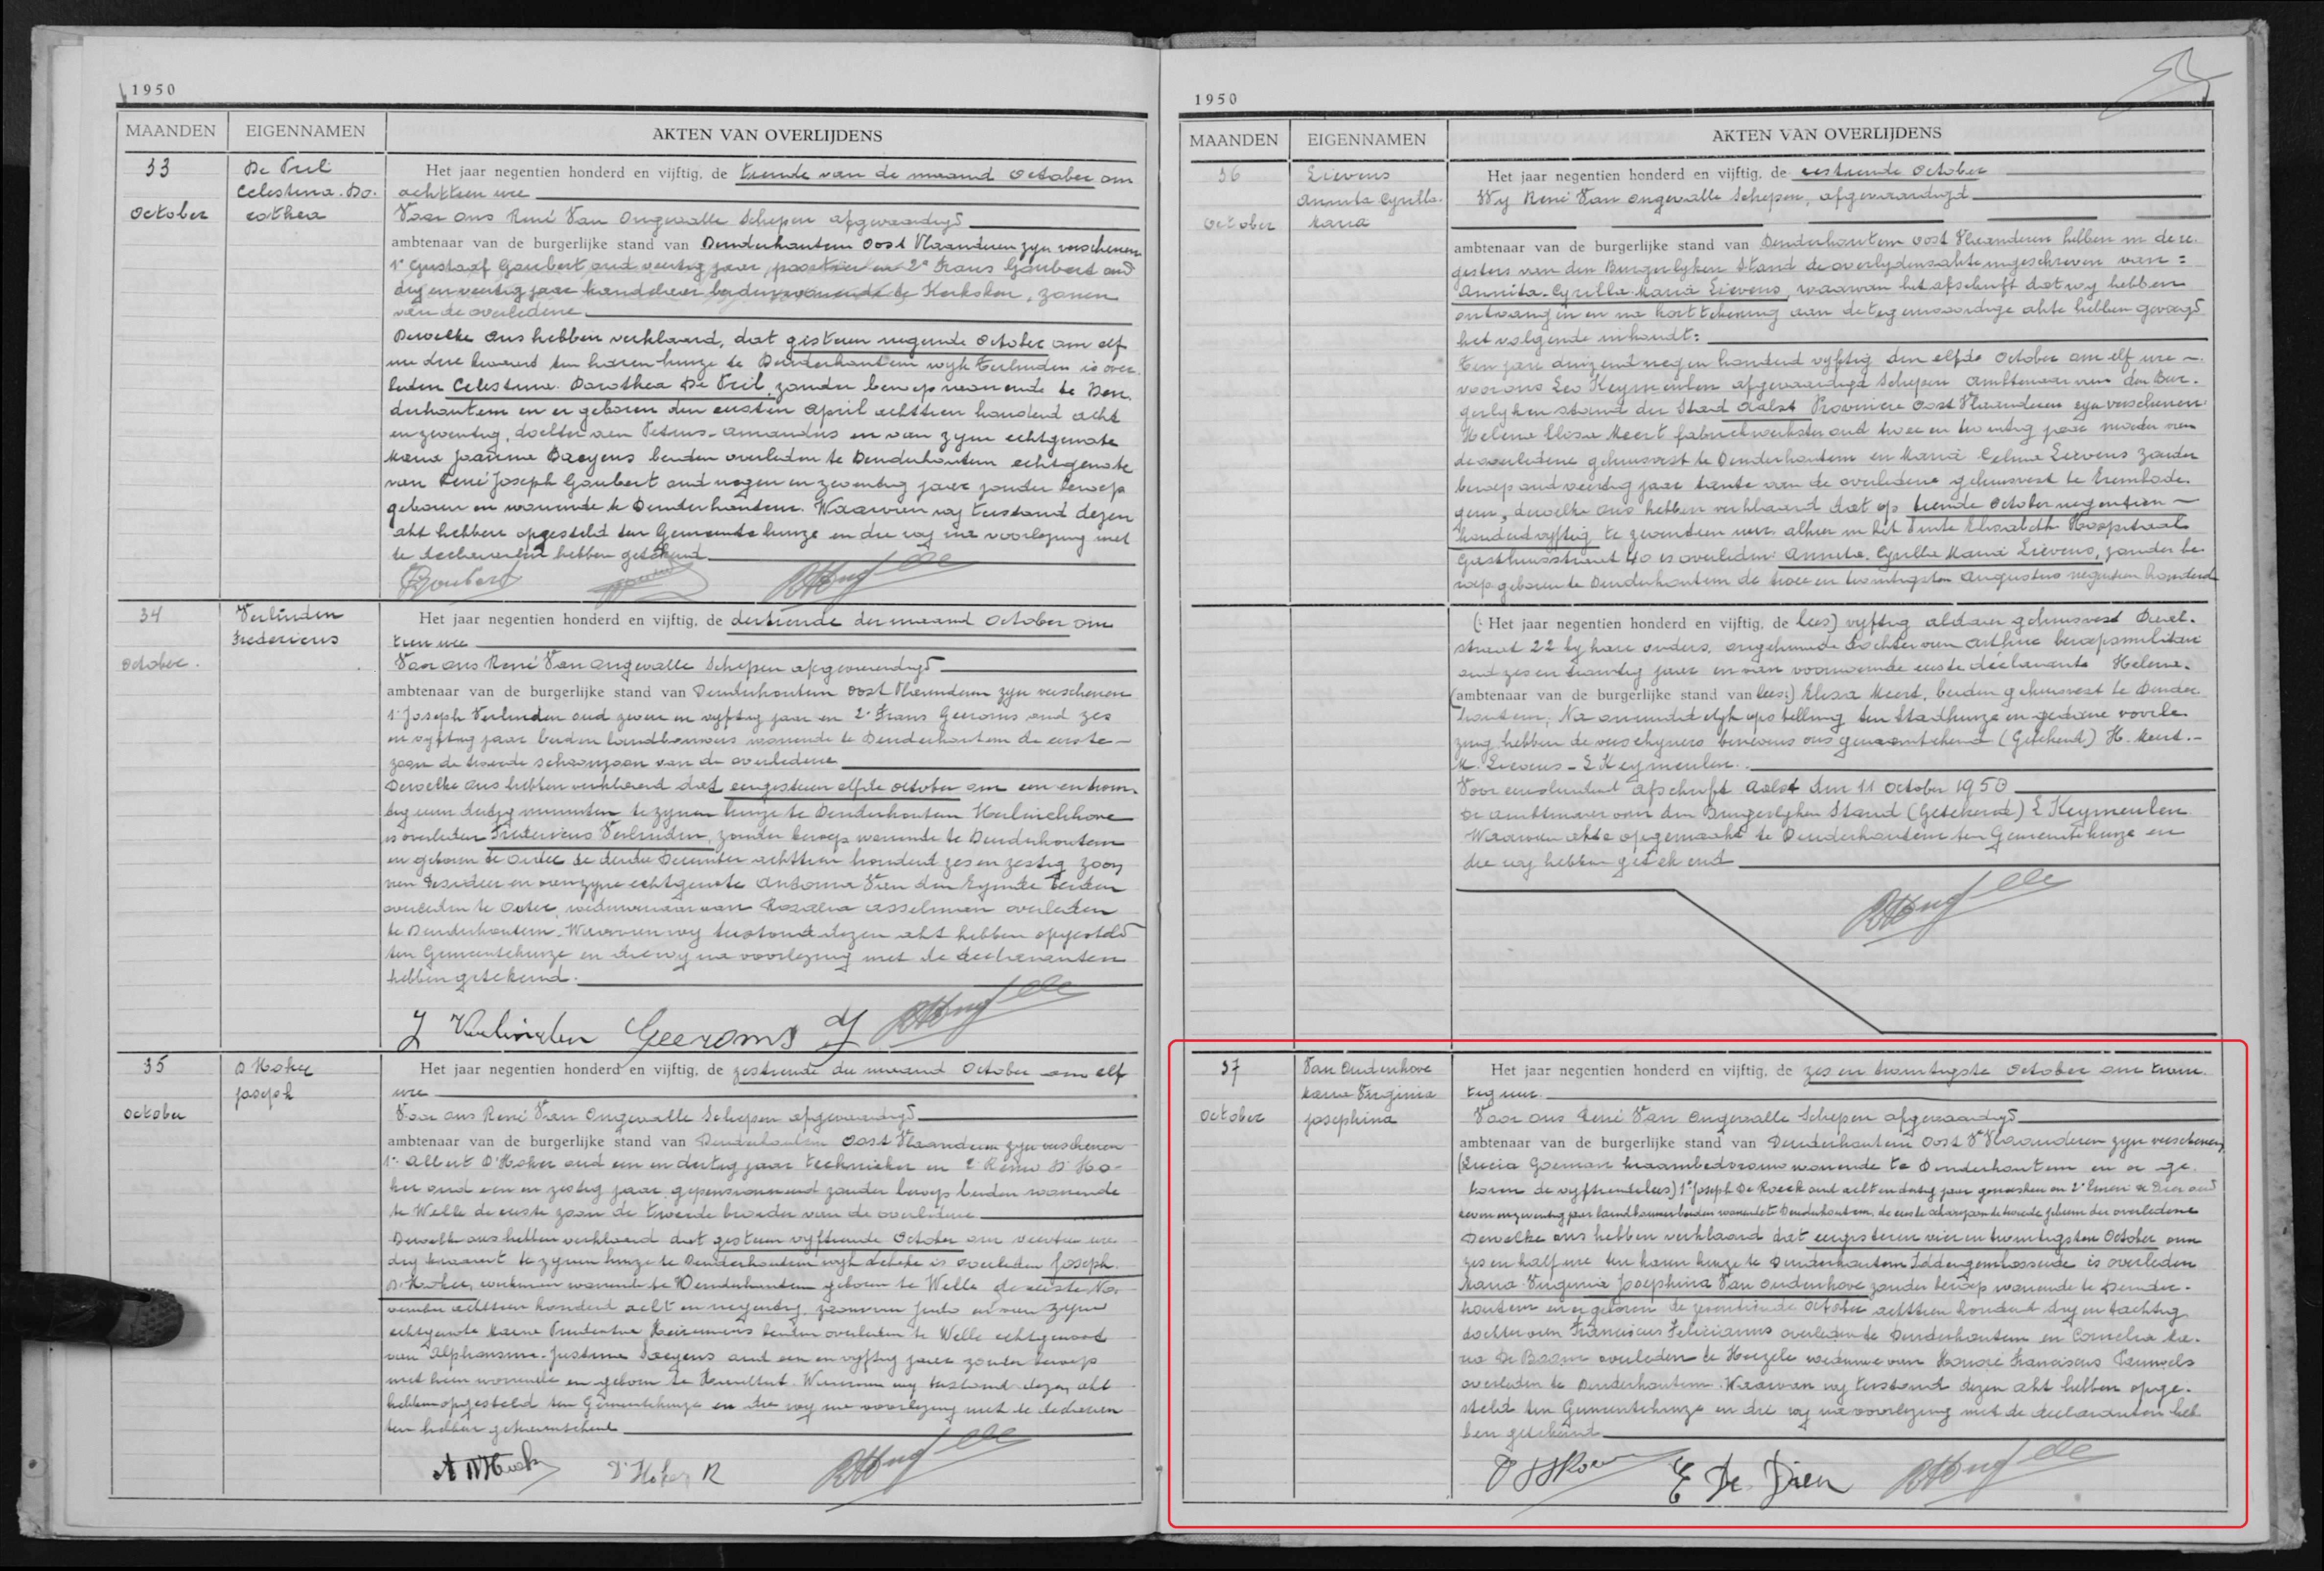 1950
MAANDEN EIGENNAMEN AKTEN VAN OVERLIJDENS
33 De Pril
Celestina. Do.
rothea
October
Het jaar negentien honderd en vijftig, de tiende van de maand October om
achttien ure
Voor ons René Van Ongevalle Schepen afgevaardigd
ambtenaar van de burgerlijke stand van Denderhoutem Oost Vlaanderen zyn verschenen
1° Gustaaf Goubert oud veertig jaar, en 2° Frans Goubert oud
dry en veertig jaar handelaar beiden wonende te Kerksken, zonen
van de overledene
Dewelke ons hebben verklaard, dat gisteren negende October om elf
ure drie kwaart ten haren huize te Denderhoutem wyk Terlinden is over-
leden Celestina Dorothea De Pril, zonder beroep wonende te Den-
derhoutem en er geboren den eersten April achttien honderd acht
en zeventig, dochter van Petrus-Amandus en van zyne echtgenote
Maria Joanna Baeyens beiden overleden te Denderhoutem echtgenote
van René Joseph Goubert oud negen en zeventig jaar zonder beroep
geboren en wonende te Denderhoutem. Waarvan wy terstond dezen
akt hebben opgesteld ten Gemeentehuize en die wy na voorlezing met
te declaranten hebben getekend
Goubert
34 Verlinden
Fredericus
October.
Het jaar negentien honderd en vijftig, de dertiende der maand October om
tien ure
Voor ons René Van Ongevalle Schepen afgevaardigd
ambtenaar van de burgerlijke stand van Denderhoutem Oost Vlaanderen zyn verschenen
1° Joseph Verlinden oud zeven en vyftig jaar en 2° Frans Geeroms oud zes
en vyftig jaar beiden landbouwers wonende te Denderhoutem de eerste
zoon de tweede schoonzoon van de overledene
Dewelke ons hebben verklaard dat eergisteren elfde October om een en twin-
tig uren dertig minuten te zynen huize te Denderhoutem
is overleden Fredericus Verlinden, zonder beroep wonende te Denderhoutem
en geboren te Outer de derde December achttien honderd zes en zestig zoon
van Desideer en van zyne echtgenote Antonia Van den Eynde beiden
overleden te Outer, weduwenaar van Rosalia Asselman overleden
te Denderhoutem. Waarvan wy terstond dezen akt hebben opgesteld
ten Gemeentehuize en die wy na voorlezing met de declaranten
hebben getekend.
J Verlinden Geeroms
35 D'Hoker
Joseph
October
Het jaar negentien honderd en vijftig, de zestiende der maand October om elf
ure
Voor ons René Van Ongevalle Schepen afgevaardigd
ambtenaar van de burgerlijke stand van Denderhoutem Oost Vlaanderen zyn verschenen
1° Albert D'Hoker oud een en dertig jaar technieker en 2° Remo D'Ho-
ker oud een en zestig jaar gepensionneerd zonder beroep beiden wonende
te Welle de eerste zoon de tweede broeder van de overledene
Dewelke ons hebben verklaard dat gisteren vyftiende October om veertien ure
dry kwaart te zynen huize te Denderhoutem wyk is overleden Joseph
D'Hoker, werkman wonende te Denderhoutem geboren te Welle de eerste No-
vember achttien honderd acht en negentig zoon van Judo en van zyne
echtgenote Maria Prudentia beiden overleden te Welle echtgenoot
van Alphonsina-Justina Baeyens oud een en vyftig jaar zonder beroep
met hem wonende en geboren te Haaltert. Waarvan wy terstond dezen akt
hebben opgesteld ten Gemeentehuize en die wy na voorlezing met de declaran
ten hebben getekend
D'Hoker R
1950
MAANDEN EIGENNAMEN AKTEN VAN OVERLIJDENS
36 Lievens
Annita Cyrilla-
Maria
October
Het jaar negentien honderd en vijftig, de zestiende October
Wy René Van Ongevalle Schepen, afgevaardigd
ambtenaar van de burgerlijke stand van Denderhoutem Oost Vlaanderen hebben in de re-
gisters van den Burgerlyken Stand de overlydensakte ingeschreven van:
Annita-Cyrilla Maria Lievens, waarvan het afschrift dat wy hebben
ontvangen en na korttekening aan de tegenwoordige akte hebben gevoegd
het volgende inhoudt:
Ten jare duizend negen honderd vyftig den elfde October om elf ure
voor ons Leo Keymeulen afgevaardigd Schepen Ambtenaar van den Bur-
gerlyken stand der Stad Aalst Provincie Oost Vlaanderen zyn verschenen:
Helena Elisa Meert fabriekwerkster oud twee en twintig jaar moeder van
de overledene gehuisvest te Denderhoutem en Maria Celina Lievens zonder
beroep oud veertig jaar tante van de overledene gehuisvest te Erembode-
gem, dewelke ons hebben verklaard dat op tiende October negentien
honderd vyftig te zeventien uur alhier in het Elisabeth Hospitaal
Gasthuisstraat 40 is overleden: Annita Cyrilla Maria Lievens, zonder be-
roep geboren te Denderhoutem de twee en twintigsten Augustus negentien honderd
(Het jaar negentien honderd en vijftig, de lees) vyftig aldaar gehuisvest
straat 22 by hare ouders, ongehuwde dochter van Arthur beroepsmilitair
oud zes en twintig jaar en van voornoemde eerste declarante Helena-
(ambtenaar van de burgerlijke stand van lees:) Elisa Meert, beiden gehuisvest te Dender-
houtem. Na onmiddelyk opstelling ten Stadhuize en gedane voorle-
zing hebben de verschyners benevens ons (Getekend) H. Meert.-
M. Lievens - L Keymeulen.
Voor eensluidend afschrift Aalst den 11 October 1950
De Ambtenaar van den Burgerlyken Stand (Getekend) L Keymeulen
Waarvan akte opgemaakt te Denderhoutem ten Gemeentehuize en
die wy hebben getekend
37 Van Oudenhove
Maria Virginia
Josephina
October
Het jaar negentien honderd en vijftig, de zes en twintigste October om twin-
tig uur.
Voor ons René Van Ongevalle Schepen afgevaardigd
ambtenaar van de burgerlijke stand van Denderhoutem Oost Vlaanderen zyn verschenen
(Lucia Goeman kraambedvrouw wonende te Denderhoutem en er ge-
boren de vyftiende lees) 1° Joseph De Roeck oud acht en dertig jaar en 2° Emiel De Dier oud
zeven en zeventig jaar landbouwer beiden wonende te Denderhoutem, de eerste schoonzoon de tweede gebuur der overledene
Dewelke ons hebben verklaard dat eergisteren vier en twintigsten October om
zes en half ure ten haren huize te Denderhoutem is overleden
Maria Virginia Josephina Van Oudenhove zonder beroep wonende te Dender-
houtem en er geboren de zeventiende October achttien honderd dry en tachtig
dochter van Franciscus Felicianus overleden te Denderhoutem en Cornelia Ma-
ria De Boom overleden te Herzele weduwe van Honoré Franciscus Pauwels
overleden te Denderhoutem. Waarvan wy terstond dezen akt hebben opge-
steld ten Gemeentehuize en die wy na voorlezing met de declaranten heb-
ben getekend
E De Dier